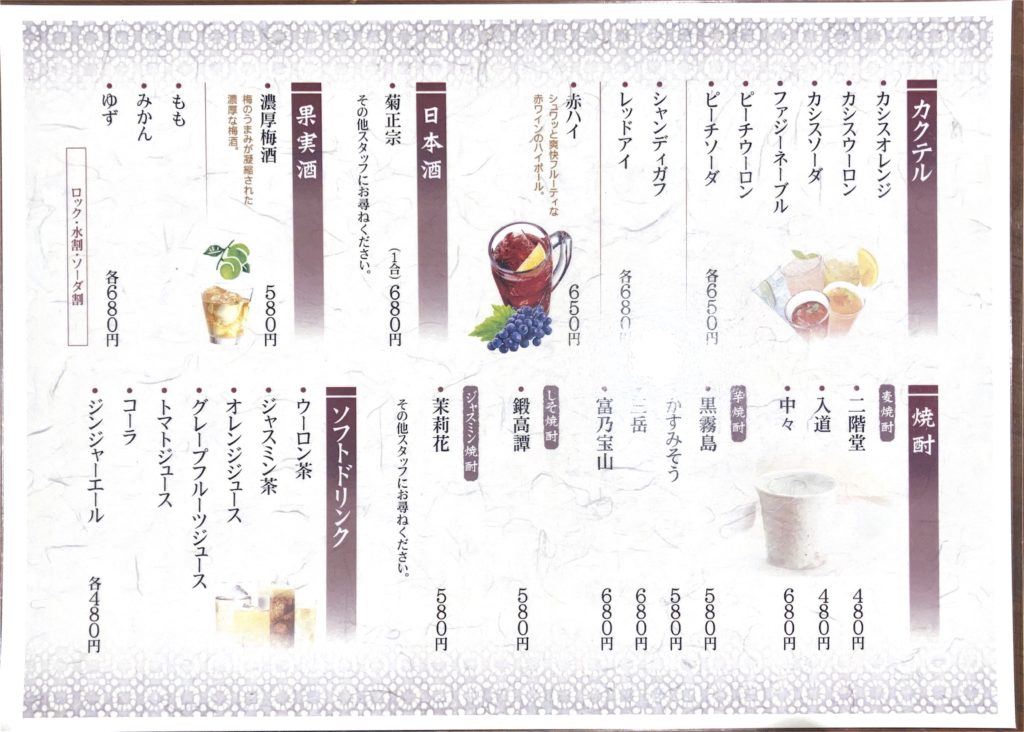 カクテル
・カシスオレンジ
・カシスウーロン
・カシスソーダ
・ファジーネーブル
・ピーチウーロン
・ピーチソーダ
各650円
・シャンディガフ
・レッドアイ
各680円
・赤ハイ
650円
シュワッと爽快フルーティな
赤ワインのハイボール。
日本酒
・菊正宗
(1合)680円
その他スタッフにお尋ねください。
果実酒
・濃厚梅酒
580円
梅のうまみが凝縮された
濃厚な梅酒。
・もも
・みかん
・ゆず
各680円
ロック・水割・ソーダ割
焼酎
麦焼酎
・二階堂
480円
・入道
480円
・中々
680円
芋焼酎
・黒霧島
580円
かすみそう
580円
三岳
680円
・富乃宝山
680円
しそ焼酎
・鍛高譚
580円
ジャスミン焼酎
・茉莉花
580円
その他スタッフにお尋ねください。
ソフトドリンク
・ウーロン茶
・ジャスミン茶
・オレンジジュース
・グレープフルーツジュース
・トマトジュース
・コーラ
・ジンジャーエール
各480円